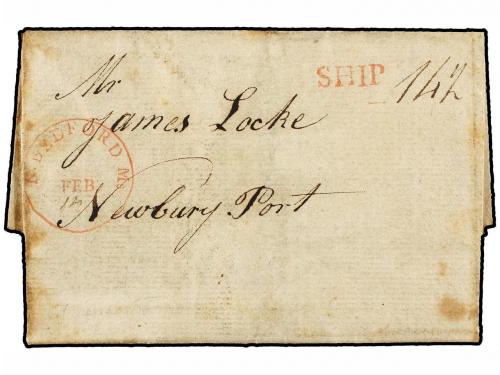 SHIP 14½
Mr
James Locke
N. BEDFORD Ms
FEB
Newbury Port